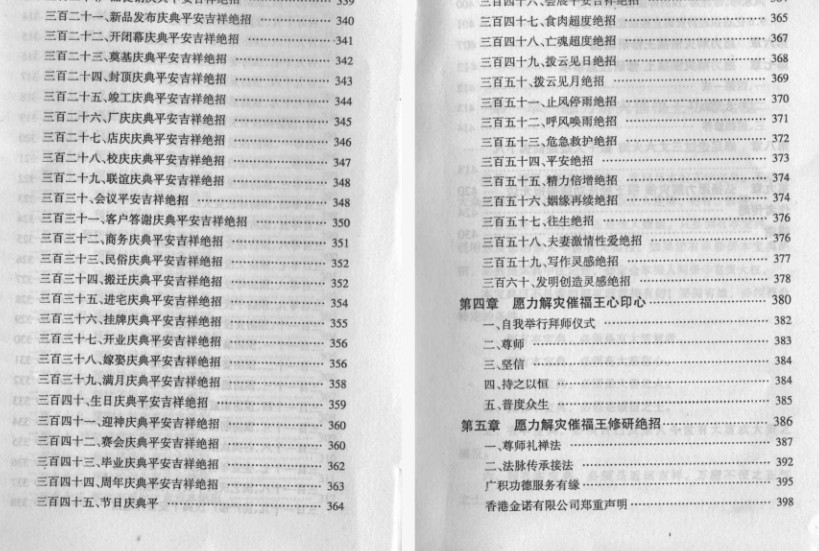 339
三百二十一、新品发布庆典平安吉祥绝招 340
三百二十二、开闭幕庆典平安吉祥绝招 341
三百二十三、奠基庆典平安吉祥绝招 342
三百二十四、封顶庆典平安吉祥绝招 343
三百二十五、竣工庆典平安吉祥绝招 344
三百二十六、厂庆庆典平安吉祥绝招 345
三百二十七、店庆庆典平安吉祥绝招 346
三百二十八、校庆庆典平安吉祥绝招 347
三百二十九、联谊庆典平安吉祥绝招 348
三百三十、会议平安吉祥绝招 348
三百三十一、客户答谢庆典平安吉祥绝招 350
三百三十二、商务庆典平安吉祥绝招 351
三百三十三、民俗庆典平安吉祥绝招 352
三百三十四、搬迁庆典平安吉祥绝招 352
三百三十五、进宅庆典平安吉祥绝招 354
三百三十六、挂牌庆典平安吉祥绝招 355
三百三十七、开业庆典平安吉祥绝招 356
三百三十八、嫁娶庆典平安吉祥绝招 356
三百三十九、满月庆典平安吉祥绝招 358
三百四十、生日庆典平安吉祥绝招 359
三百四十一、迎神庆典平安吉祥绝招 360
三百四十二、赛会庆典平安吉祥绝招 360
三百四十三、毕业庆典平安吉祥绝招 362
三百四十四、周年庆典平安吉祥绝招 363
三百四十五、节日庆典平 364
三百四十六、会展平安吉祥绝招
三百四十七、食肉超度绝招 365
三百四十八、亡魂超度绝招 367
三百四十九、拨云见日绝招 368
三百五十、拨云见月绝招 369
三百五十一、止风停雨绝招 370
三百五十二、呼风唤雨绝招 371
三百五十三、危急救护绝招 372
三百五十四、平安绝招 373
三百五十五、精力倍增绝招 374
三百五十六、姻缘再续绝招 374
三百五十七、往生绝招 376
三百五十八、夫妻激情性爱绝招 376
三百五十九、写作灵感绝招 377
三百六十、发明创造灵感绝招 378
第四章 愿力解灾催福王心印心 380
一、自我举行拜师仪式 382
二、尊师 383
三、坚信 384
四、持之以恒 384
五、普度众生 385
第五章 愿力解灾催福王修研绝招 386
一、尊师礼禅法 387
二、法脉传承接法 392
广积功德服务有缘 395
香港金诺有限公司郑重声明 398